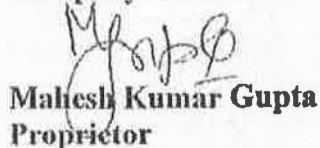 Mahesh Kumar Gupta
Proprietor